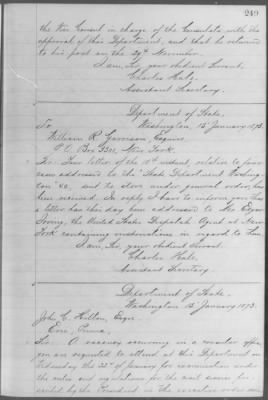 249
the Vice Consul in charge of the Consulate with the
approval of this Department, and that he returned
to his post on the 29th November.
I am, Sir, your obedient Servant,
Charles Hale,
Assistant Secretary.
Department of State,
Washington, 15 January 1873.
To
William R. Garrison, Esquire,
P.O. Box New York.
Sir: Your letter of the 10th instant, relative to four
cases addressed to the "State Department Washing-
ton" &c. and to store under general order, has
been received. In reply I have to inform you that
a letter has this day been addressed to Mr.
Irving, the United States Dispatch Agent at New
York containing instructions in regard to them.
I am, Sir, your obedient servant.
Charles Hale,
Assistant Secretary
Department of State.
Washington 15 January 1873.
John C. Esqr.
Sir: A vacancy occurring in a
you are requested to attend at this Department on
Wednesday the 22d of January for examination under
the rules and regulations for the civil service
by the President in the executive order